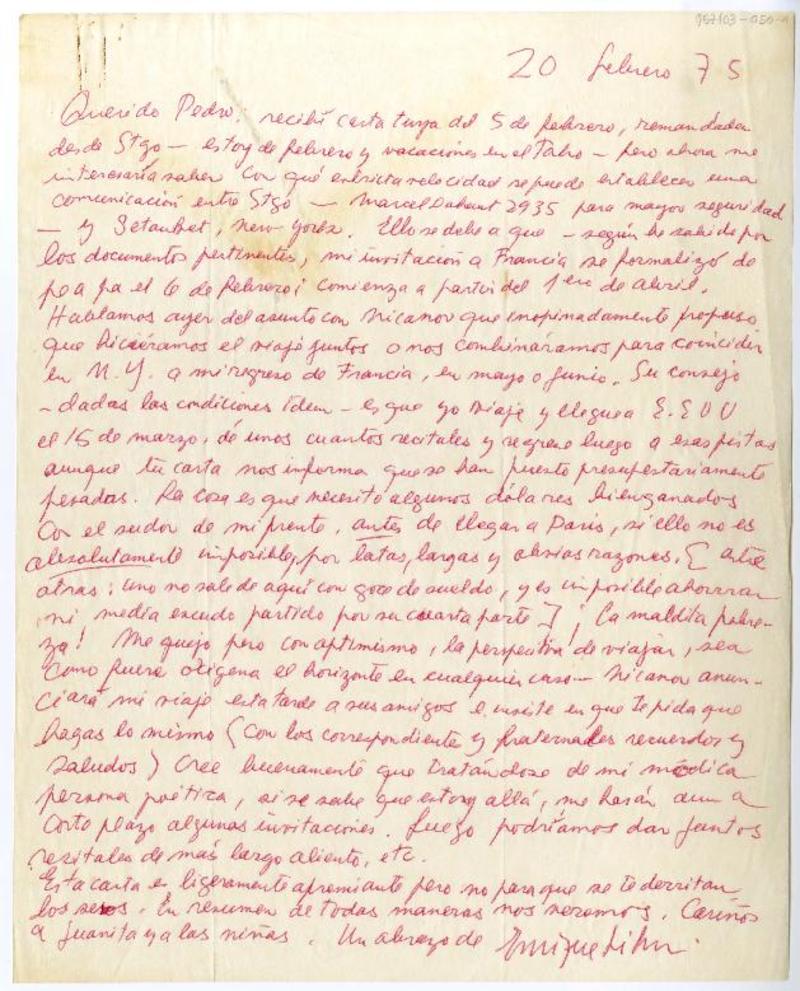 20 febrero 75
Querido Pedro: recibí carta tuya del 5 de febrero, remandada
desde Stgo — estoy de febrero y vacaciones en el Tabo — pero ahora me
interesaría saber con qué estricta velocidad se puede establecer una
comunicación entre Stgo — Marcel Duhaut 2935 para mayor seguridad
— y Setauket, New York. Ello se debe a que — según he sabido por
los documentos pertinentes, mi invitación a Francia se formalizó de
pe a pa el 6 de febrero; comienza a partir del 1ero de abril.
Hablamos ayer del asunto con Nicanor que inopinadamente propuso
que hiciéramos el viaje juntos o nos combináramos para coincidir
en N.Y. a mi regreso de Francia, en mayo o junio. Su consejo
— dadas las condiciones idem — es que yo viaje y llegue a E.EUU
el 15 de marzo, dé unos cuantos recitales y regrese luego a esas pistas
aunque tu carta nos informa que se han puesto presupuestariamente
pesadas. La cosa es que necesito algunos dólares bien ganados
con el sudor de mi frente, antes de llegar a París, si ello no es
absolutamente imposible, por latas, largas y obvias razones. [entre
otras: uno no sale de aquí con goce de sueldo, y es imposible ahorrar
ni medio escudo partido por su cuarta parte]; ¡La maldita pobre-
za! Me quejo pero con optimismo, la perspectiva de viajar, sea
como fuere oxigena el horizonte en cualquier caso — Nicanor anun-
ciará mi viaje esta tarde a sus amigos e insiste en que te pida que
hagas lo mismo (con los correspondiente y fraternales recuerdos y
saludos) Cree buenamente que tratándose de mi módica
persona poética, si se sabe que estoy allá, me harán aun a
corto plazo algunas invitaciones. Luego podríamos dar juntos
recitales de más largo aliento, etc.
Esta carta es ligeramente apremiante pero no para que se te derritan
los sesos. En resumen de todas maneras nos veremos. Cariños
a Juanita y a las niñas. Un abrazo de Enrique Lihn.